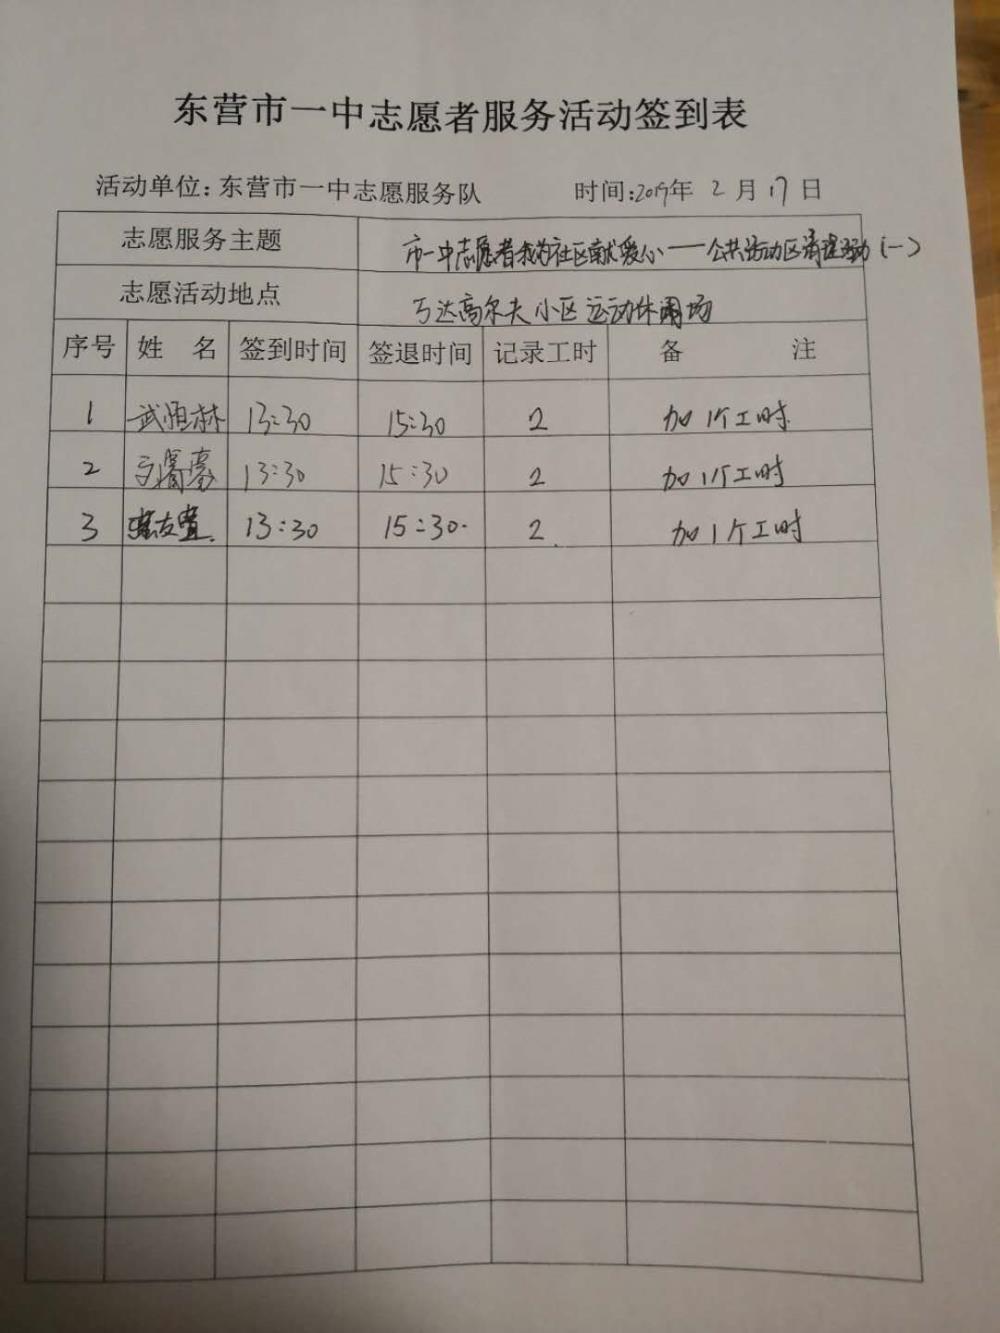 东营市一中志愿者服务活动签到表
活动单位:东营市一中志愿服务队 时间:2019年 2 月 17 日
志愿服务主题 市一中志愿者我为社区献爱心——公共活动区清理活动(一)
志愿活动地点 万达高尔夫小区运动休闲场
序号 姓 名 签到时间 签退时间 记录工时 备 注
1 武恒林 13:30 15:30 2 加1个工时
2 13:30 15:30 2 加1个工时
3 13:30 15:30. 2. 加1个工时